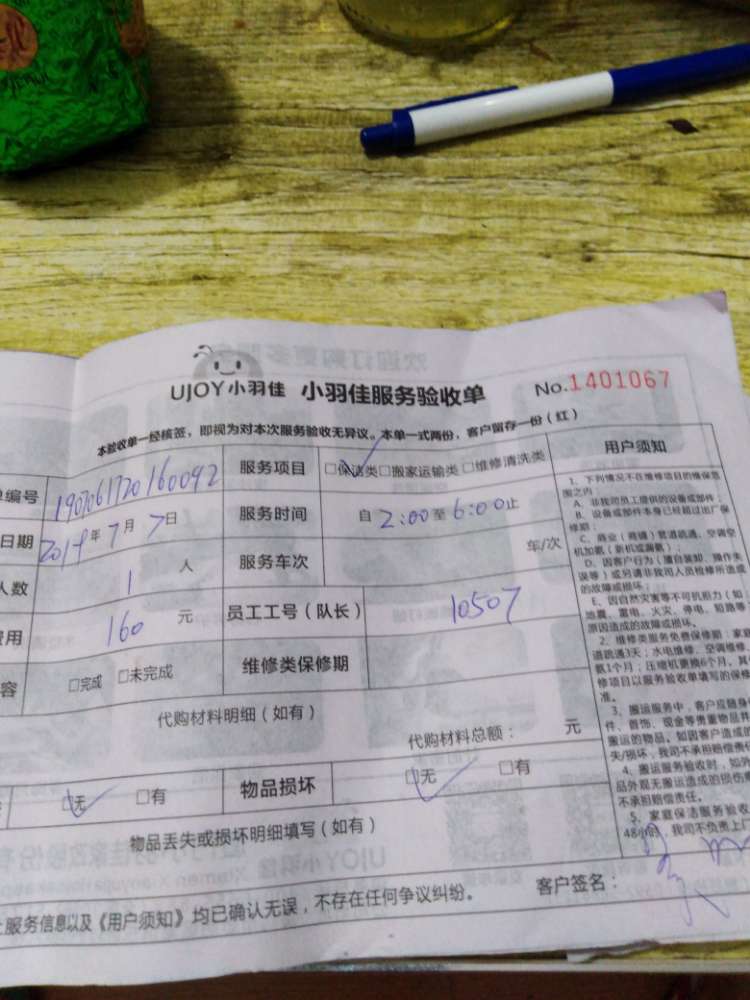 UJOY小羽佳 小羽佳服务验收单 No.1401067
本验收单一经核签，即视为对本次服务验收无异议。本单一式两份，客户留存一份（红）
单编号 1907061720160092 服务项目 □保洁类□搬家运输类□维修清洗类
日期 2019年7月7日 服务时间 自2:00至6:00止
人数 1人 服务车次 年/次
费用 160元 员工工号（队长） 10507
容 □完成 □未完成 维修类保修期
代购材料明细（如有）
代购材料总额： 元
□无 □有 物品损坏 □无 □有
物品丢失或损坏明细填写（如有）
上服务信息以及《用户须知》均已确认无误，不存在任何争议纠纷。 客户签名：
用户须知
1、下列情况不在维修项目的维保范
围之内：
A、非我司员工提供的设备或部件；
B、设备或部件本身已经超过出厂保
修期；
C、商业（商铺）管道疏通、空调空
机加氨（新机或漏氨）；
D、因客户行为（擅自装卸、操作失
误等）或另请非我司人员检修所造成
的故障或损坏；
E、因自然灾害等不可抗拒力（如
地震、雷电、火灾、停电、短路等
原因造成的故障或损坏。
2、维修类服务免费保修期：家庭
道疏通3天；水电维修、空调维修、
氨1个月；压缩机更换6个月，其
修项目以服务验收单填写的保修
准。
3、搬运服务中，客户应随身
件、首饰、现金等贵重物品
搬运的物品。如因客户造成的
失/损坏，我司不承担赔偿责
4、搬运服务验收时，如外
品外观无搬运造成的损伤
不承担赔偿责任。
5、家庭保洁服务验收
48小时，我司不负责上门